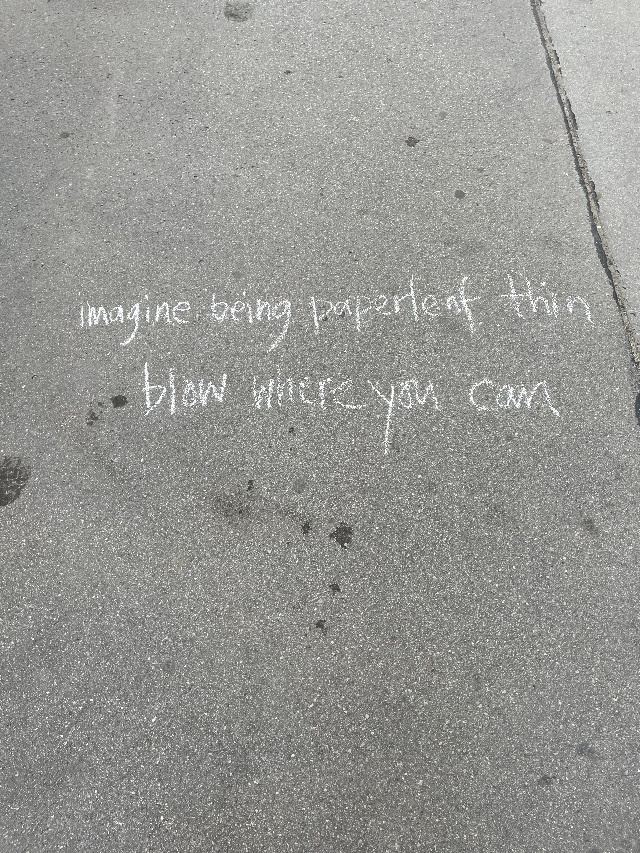 imagine being paperleaf thin
blow where you can